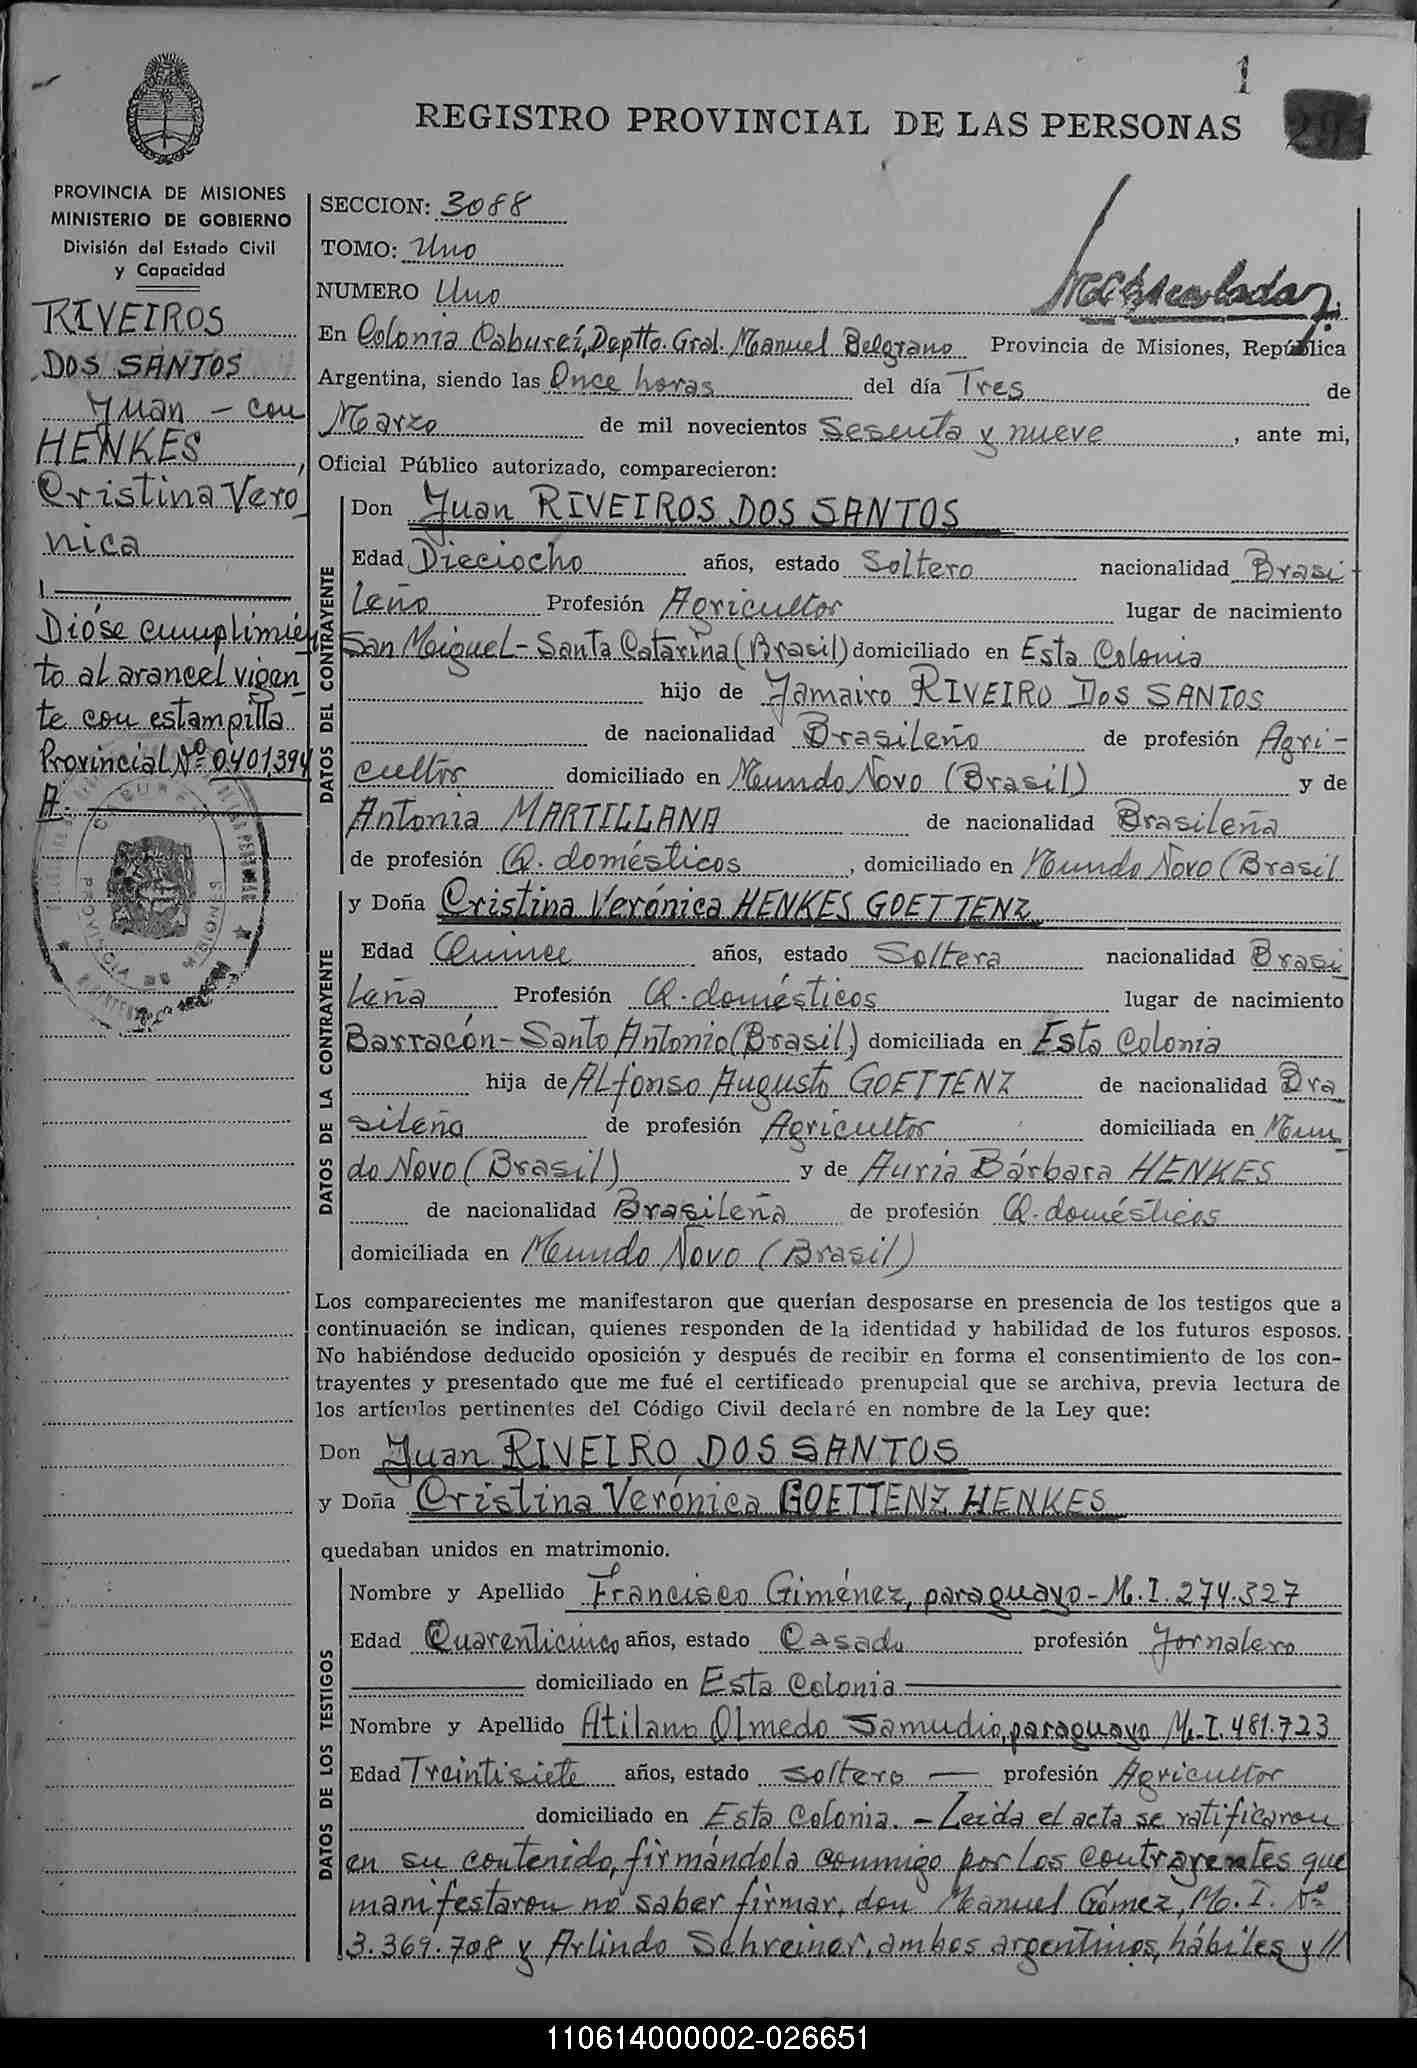 1
REGISTRO PROVINCIAL DE LAS PERSONAS
291
PROVINCIA DE MISIONES
MINISTERIO DE GOBIERNO
División del Estado Civil
y Capacidad
RIVEIROS
DOS SANTOS
Juan - con
HENKES,
Cristina Veró
nica
Dióse cumplimien
to al arancel vigen
te con estampilla
Provincial Nº 0401394
A.
PROVINCIA DE MISIONES
SECCION: 3088
TOMO: Uno
NUMERO Uno
En Colonia Cabureí, Deptto. Gral. Manuel Belgrano Provincia de Misiones, República
Argentina, siendo las Once horas del día Tres de
Marzo de mil novecientos Sesenta y nueve, ante mi,
Oficial Público autorizado, comparecieron:
DATOS DEL CONTRAYENTE
Don Juan RIVEIROS DOS SANTOS
Edad Dieciocho años, estado Soltero nacionalidad Brasi
leño Profesión Agricultor lugar de nacimiento
San Miguel - Santa Catarina (Brasil) domiciliado en Esta Colonia
hijo de Jamairo RIVEIRO DOS SANTOS
de nacionalidad Brasileño de profesión Agri-
cultor domiciliado en Mundo Novo (Brasil) y de
Antonia MARTILLANA de nacionalidad Brasileña
de profesión Q. domésticos, domiciliado en Mundo Novo (Brasil
DATOS DE LA CONTRAYENTE
y Doña Cristina Verónica HENKES GOETTENZ
Edad Quince años, estado Soltera nacionalidad Brasi
leña Profesión Q. domésticos lugar de nacimiento
Barracón - Santo Antonio (Brasil) domiciliada en Esta Colonia
hija de Alfonso Augusto GOETTENZ de nacionalidad Bra
sileña de profesión Agricultor domiciliada en Mun
do Novo (Brasil) y de Auria Bárbara HENKES
de nacionalidad Brasileña de profesión Q. domésticos
domiciliada en Mundo Novo (Brasil)
Los comparecientes me manifestaron que querían desposarse en presencia de los testigos que a
continuación se indican, quienes responden de la identidad y habilidad de los futuros esposos.
No habiéndose deducido oposición y después de recibir en forma el consentimiento de los con-
trayentes y presentado que me fué el certificado prenupcial que se archiva, previa lectura de
los artículos pertinentes del Código Civil declaré en nombre de la Ley que:
Don Juan RIVEIRO DOS SANTOS
y Doña Cristina Verónica GOETTENZ HENKES
quedaban unidos en matrimonio.
DATOS DE LOS TESTIGOS
Nombre y Apellido Francisco Giménez, paraguayo - M.I. 274.327
Edad Quarenticinco años, estado Casado profesión Jornalero
domiciliado en Esta Colonia
Nombre y Apellido Atilano Olmedo Samudio, paraguayo M.I. 481.723
Edad Treintisiete años, estado soltero profesión Agricultor
domiciliado en Esta Colonia. - Leida el acta se ratificaron
en su contenido, firmándola conmigo por los contrayentes que
manifestaron no saber firmar, don Manuel Gómez, M. I. Nº
3.369.708 y Arlindo Schreiner, ambos argentinos, hábiles y //
110614000002-026651